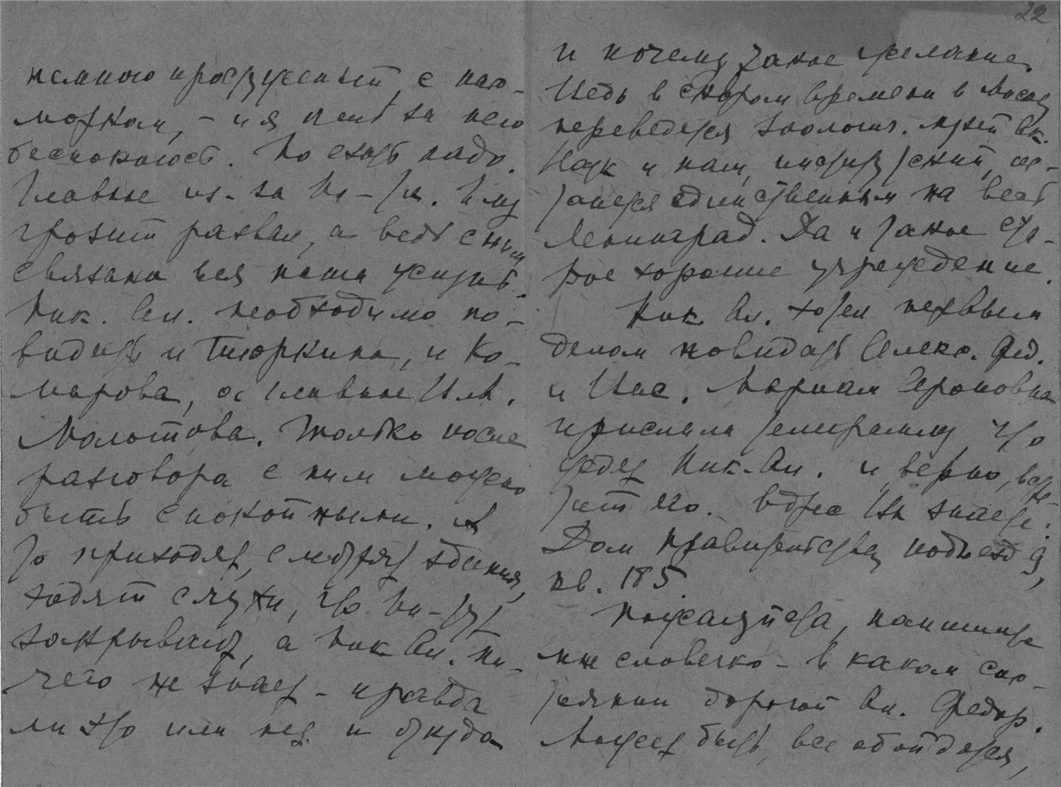 немного простуженный, с нас-
морком, – и я пешь за него
беспокоюсь. Но ехать надо.
Главное из-за Ин-та. Ему
грозит развал, а ведь с ним
связана вся наша жизнь.
Ник. Ал. необходимо по-
видать и Тюркина, и Ко-
марова, а главное
Молотова. Только после
разговора с ним можно
быть спокойными. А
то приходят, смотрят здания,
ходят слухи, что Ин-тут
закрывают, а Ник. Ал. ни-
чего не знает – правда
ли это или нет и откуда
22
и почему такое желание.
Ведь в скором времени в Москву
переведется Зоологич. музей Ак.
Наук и наш, институтский, ос-
танется единственным на весь
Ленинград. Да и такое ста-
рое хорошее учреждение.
Ник Ал. хотел первым
делом повидать Алекс. Фед.
и Ива. Мариам Героновна
прислала телеграмму что
ждет Ник. Ал. и верно, встре-
тит его. Адрес Их знаете:
Дом правительства, подъезд 9,
кв. 185.
Пожалуйста, напишите
мне словечко – в каком сос-
тоянии дорогой Ал. Федор.
Может быть, все обойдется,